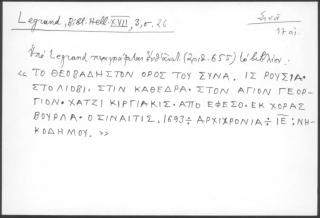 Legrand, Bibl. Hell. XVII, 3, σ. 26
Σινᾶ
17 αἰ.
Ὑπὸ Legrand περιγράφεται (ἀριθ. 655) τὸ βιβλίον:
« ΤΟ ΘΕΟΒΑΔΗΣΤΟΝ ΟΡΟΣ ΤΟΥ ΣΥΝΑ. ΙΣ ΡΟΥΣΙΑ.
ΣΤΟ ΛΙΟΒΙ. ΣΤΙΝ ΚΑΘΕΔΡΑ. ΣΤΟΝ ΑΓΙΟΝ ΓΕΩΡ-
ΓΙΟΝ. ΧΑΤΖΙ ΚΙΡΓΙΑΚΙΣ. ΑΠΟ ΕΦΕΣΟ. ΕΚ ΧΟΡΑΣ
ΒΟΥΡΛΑ. Ο ΣΙΝΑΙΤΙΣ. 1693 ÷ ΑΡΧΙΧΡΟΝΙΑ ÷ ΙΕ : ΝΗ-
ΚΟΔΗΜΟΥ. »